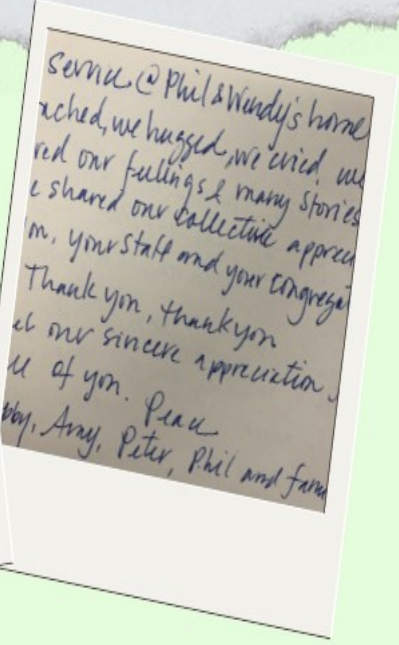 Service @ Phil & Wendy's home
ached, we hugged, we cried, we
red our feelings & many stories
e shared our collective apprec
you, your staff and your congregat
Thank you, thank you
our sincere appreciation
of you. Peace
bby, Amy, Peter, Phil and fam